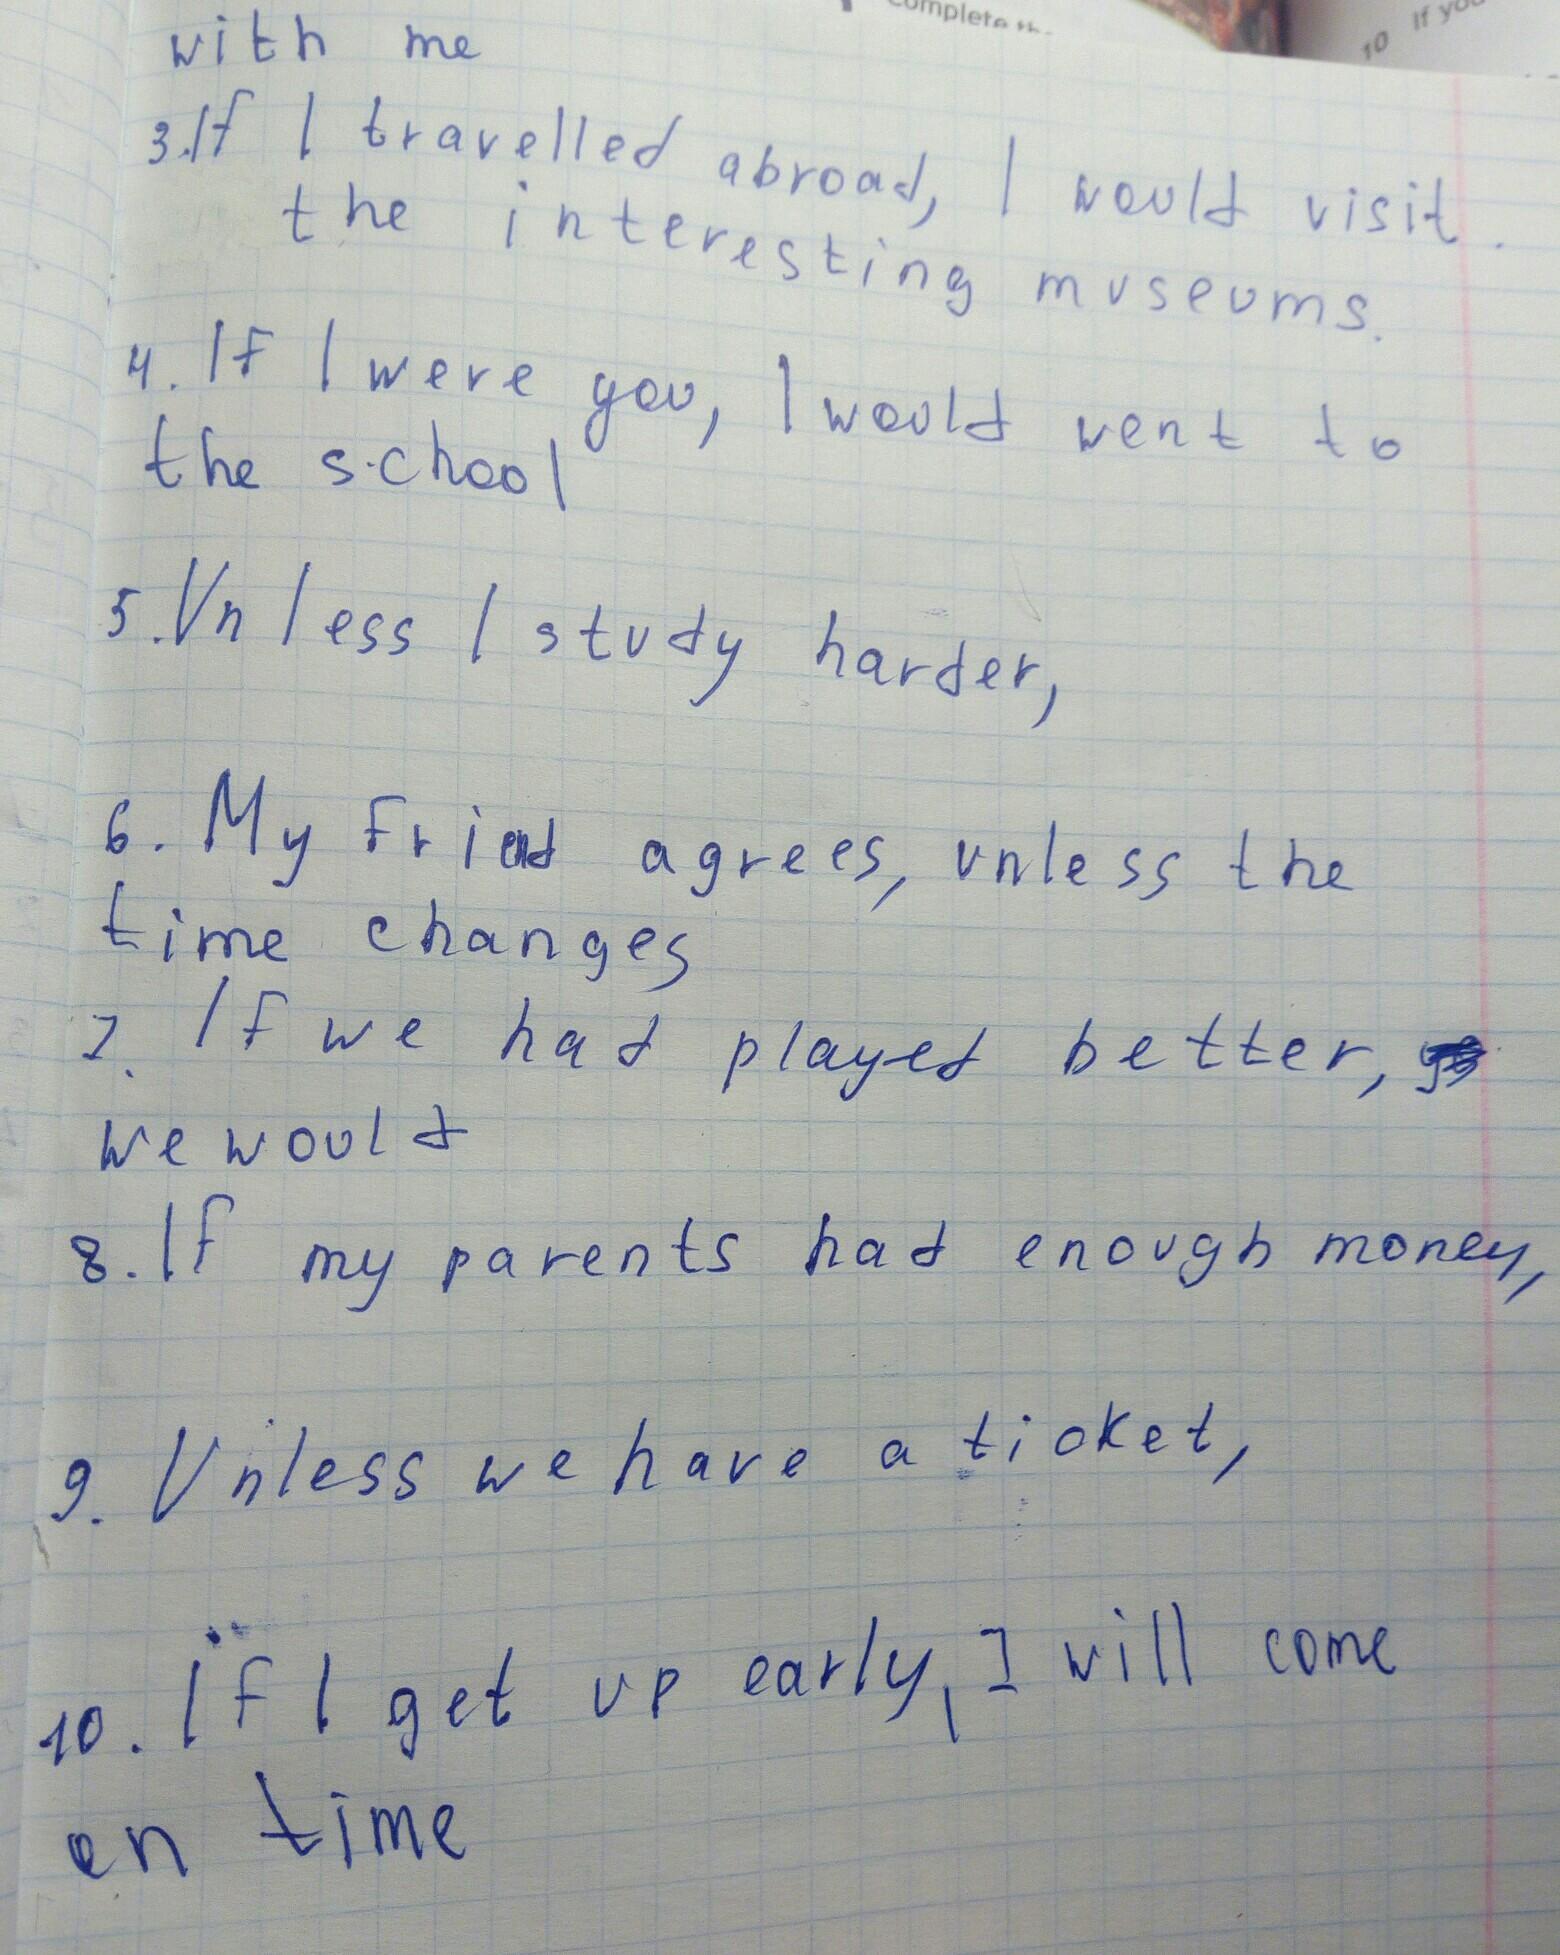 Complete th
10 If you
with me
3. If I travelled abroad, I would visit.
the interesting museums.
4. If I were you, I would went to
the school
5. Unless I study harder,
6. My friend agrees, unless the
time changes
7. If we had played better,
we would
8. If my parents had enough money,
9. Unless we have a ticket,
10. If I get up early, I will come
on time